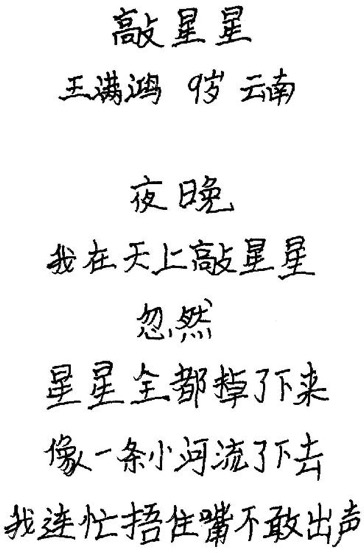 敲星星
王满鸿 9岁 云南
夜晚
我在天上敲星星
忽然
星星全都掉了下来
像一条小河流了下去
我连忙捂住嘴不敢出声